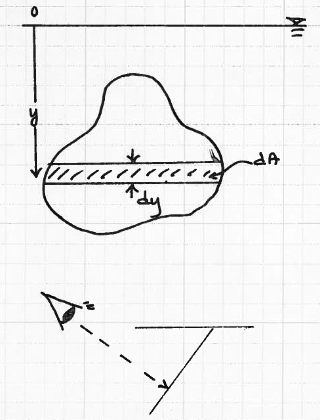 0
y
dA
dy